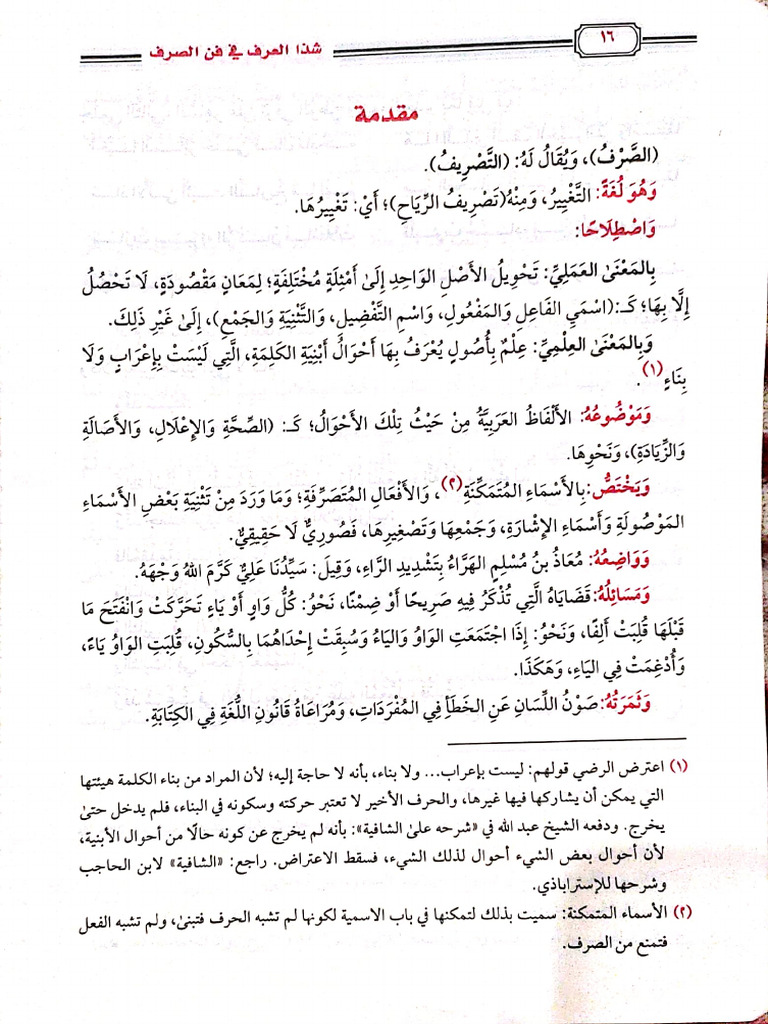 ١٦
شذا العرف في فن الصرف
مقدمة
(الصَّرْفُ)، وَيُقَالُ لَهُ: (التَّصْرِيفُ).
وَهُوَ لُغَةً: التَّغْيِيرُ، وَمِنْهُ (تَصْرِيفُ الرِّيَاحِ)؛ أَيْ: تَغْيِيرُهَا.
وَاصْطِلَاحًا:
بِالمَعْنَى العَمَلِيِّ: تَحْوِيلُ الأَصْلِ الوَاحِدِ إِلَىٰ أَمْثِلَةٍ مُخْتَلِفَةٍ؛ لِمَعَانٍ مَقْصُودَةٍ، لَا تَحْصُلُ
إِلَّا بِهَا؛ كَـ: (اسْمَيِ الفَاعِلِ وَالمَفْعُولِ، وَاسْمِ التَّفْضِيلِ، وَالتَّثْنِيَةِ وَالجَمْعِ)، إِلَىٰ غَيْرِ ذَلِكَ.
وَبِالمَعْنَىٰ العِلْمِيِّ: عِلْمٌ بِأُصُولٍ يُعْرَفُ بِهَا أَحْوَالُ أَبْنِيَةِ الكَلِمَةِ، الَّتِي لَيْسَتْ بِإِعْرَابٍ وَلَا
بِنَاءٍ(١).
وَمَوْضُوعُهُ: الأَلْفَاظُ العَرَبِيَّةُ مِنْ حَيْثُ تِلْكَ الأَحْوَالُ؛ كَـ: (الصِّحَّةِ وَالإِعْلَالِ، وَالأَصَالَةِ
وَالزِّيَادَةِ)، وَنَحْوِهَا.
وَيَخْتَصُّ: بِالأَسْمَاءِ المُتَمَكِّنَةِ(٢)، وَالأَفْعَالِ المُتَصَرِّفَةِ؛ وَمَا وَرَدَ مِنْ تَثْنِيَةِ بَعْضِ الأَسْمَاءِ
المَوْصُولَةِ وَأَسْمَاءِ الإِشْارَةِ، وَجَمْعِهَا وَتَصْغِيرِهَا، فَصُورِيٌّ لَا حَقِيقِيٌّ.
وَوَاضِعُهُ: مُعَاذُ بنُ مُسْلِمٍ الهَرَّاءُ بِتَشْدِيدِ الرَّاءِ، وَقِيلَ: سَيِّدُنَا عَلِيٌّ كَرَّمَ اللهُ وَجْهَهُ.
وَمَسَائِلُهُ: قَضَايَاهُ الَّتِي تُذْكَرُ فِيهِ صَرِيحًا أَوْ ضِمْنًا، نَحْوُ: كُلُّ وَاوٍ أَوْ يَاءٍ تَحَرَّكَتْ وَانْفَتَحَ مَا
قَبْلَهَا قُلِبَتْ أَلِفًا، وَنَحْوُ: إِذَا اجْتَمَعَتِ الوَاوُ وَاليَاءُ وَسُبِقَتْ إِحْدَاهُمَا بِالسُّكُونِ، قُلِبَتِ الوَاوُ يَاءً،
وَأُدْغِمَتْ فِي اليَاءِ، وَهَكَذَا.
وَثَمَرَتُهُ: صَوْنُ اللِّسَانِ عَنِ الخَطَأِ فِي المُفْرَدَاتِ، وَمُرَاعَاةُ قَانُونِ اللُّغَةِ فِي الكِتَابَةِ.
(١) اعترض الرضي قولهم: ليست بإعراب... ولا بناء، بأنه لا حاجة إليه؛ لأن المراد من بناء الكلمة هيئتها
التي يمكن أن يشاركها فيها غيرها، والحرف الأخير لا تعتبر حركته وسكونه في البناء، فلم يدخل حتىٰ
يخرج. ودفعه الشيخ عبد الله في «شرحه علىٰ الشافية»: بأنه لم يخرج عن كونه حالًا من أحوال الأبنية،
لأن أحوال بعض الشيء أحوال لذلك الشيء، فسقط الاعتراض. راجع: «الشافية» لابن الحاجب
وشرحها للإستراباذي.
(٢) الأسماء المتمكنة: سميت بذلك لتمكنها في باب الاسمية لكونها لم تشبه الحرف فتبنىٰ، ولم تشبه الفعل
فتمنع من الصرف.